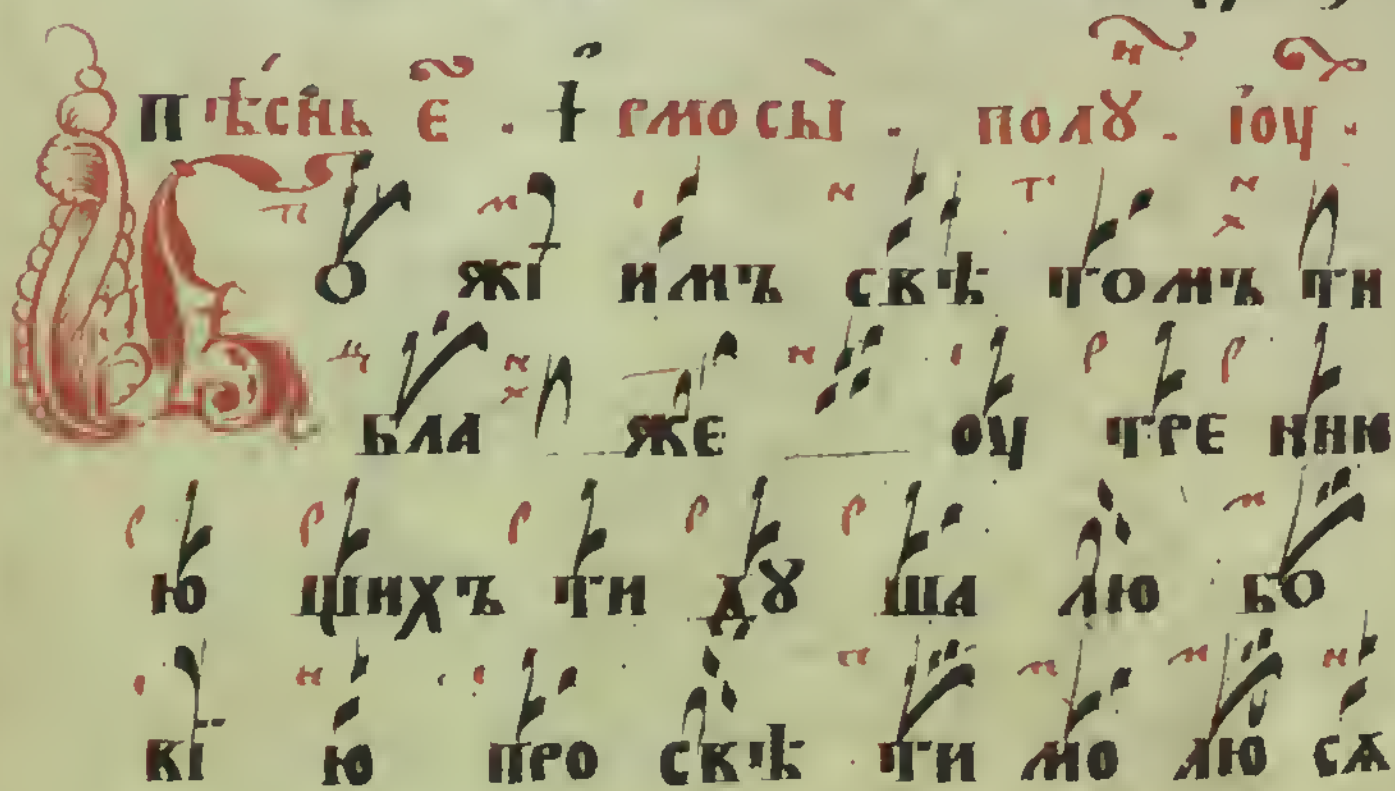 Пѣснь є҃ . І рмосы . полꙋ . іоу .
Бо жі имъ свѣ томъ ти
бла же оу тре нню
ю щихъ ти дꙋ ша лю бо
ві ю про свѣ ти мо лю сѧ